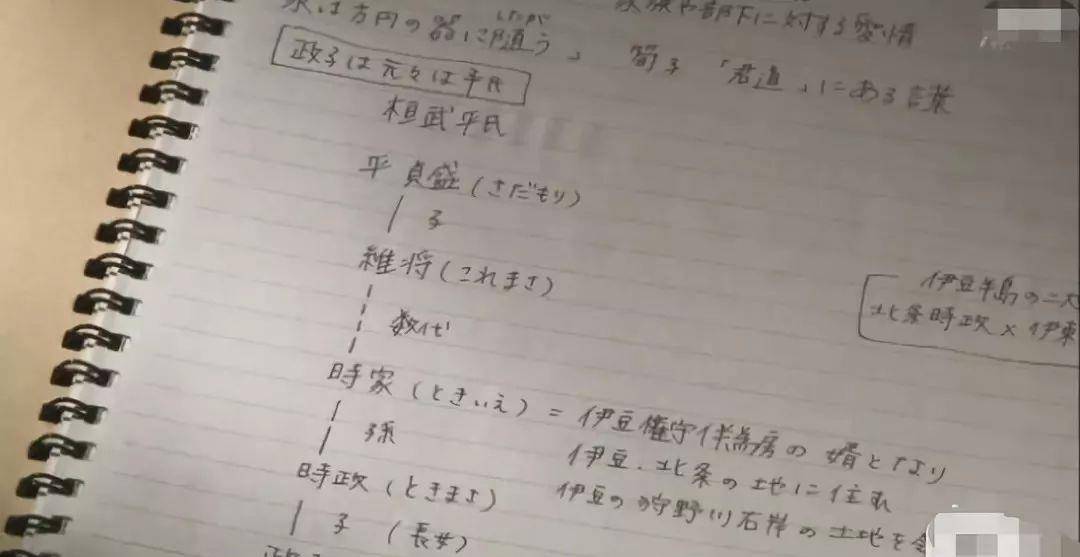 家族や部下に対する愛情
水は方円の器に随う」 荀子「君道」にある言葉
政子は元々は平氏
桓武平氏
平 貞盛(さだもり)
子
維将(これまさ)
数代
伊豆半島の二大
北条時政×伊東
時家(ときいえ)=伊豆権守伴為房の婿となり
孫
伊豆、北条の地に住む
時政(ときまさ) 伊豆の狩野川右岸の土地を
子(長女)